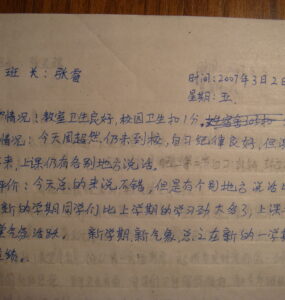 班 长：张雷
时间：2007年3月2日
星期：五.
情况：教室卫生良好，校园卫生扣1分。
情况：今天周超然，仍未到校，自习纪律良好，但课
来，上课仍有个别地方说话。
评价：今天总的来说不错，但是有个别地方说话
新的学期同学们比上学期的学习劲大多了，上课
气氛活跃。 新学期新气象，总之在新的一学期